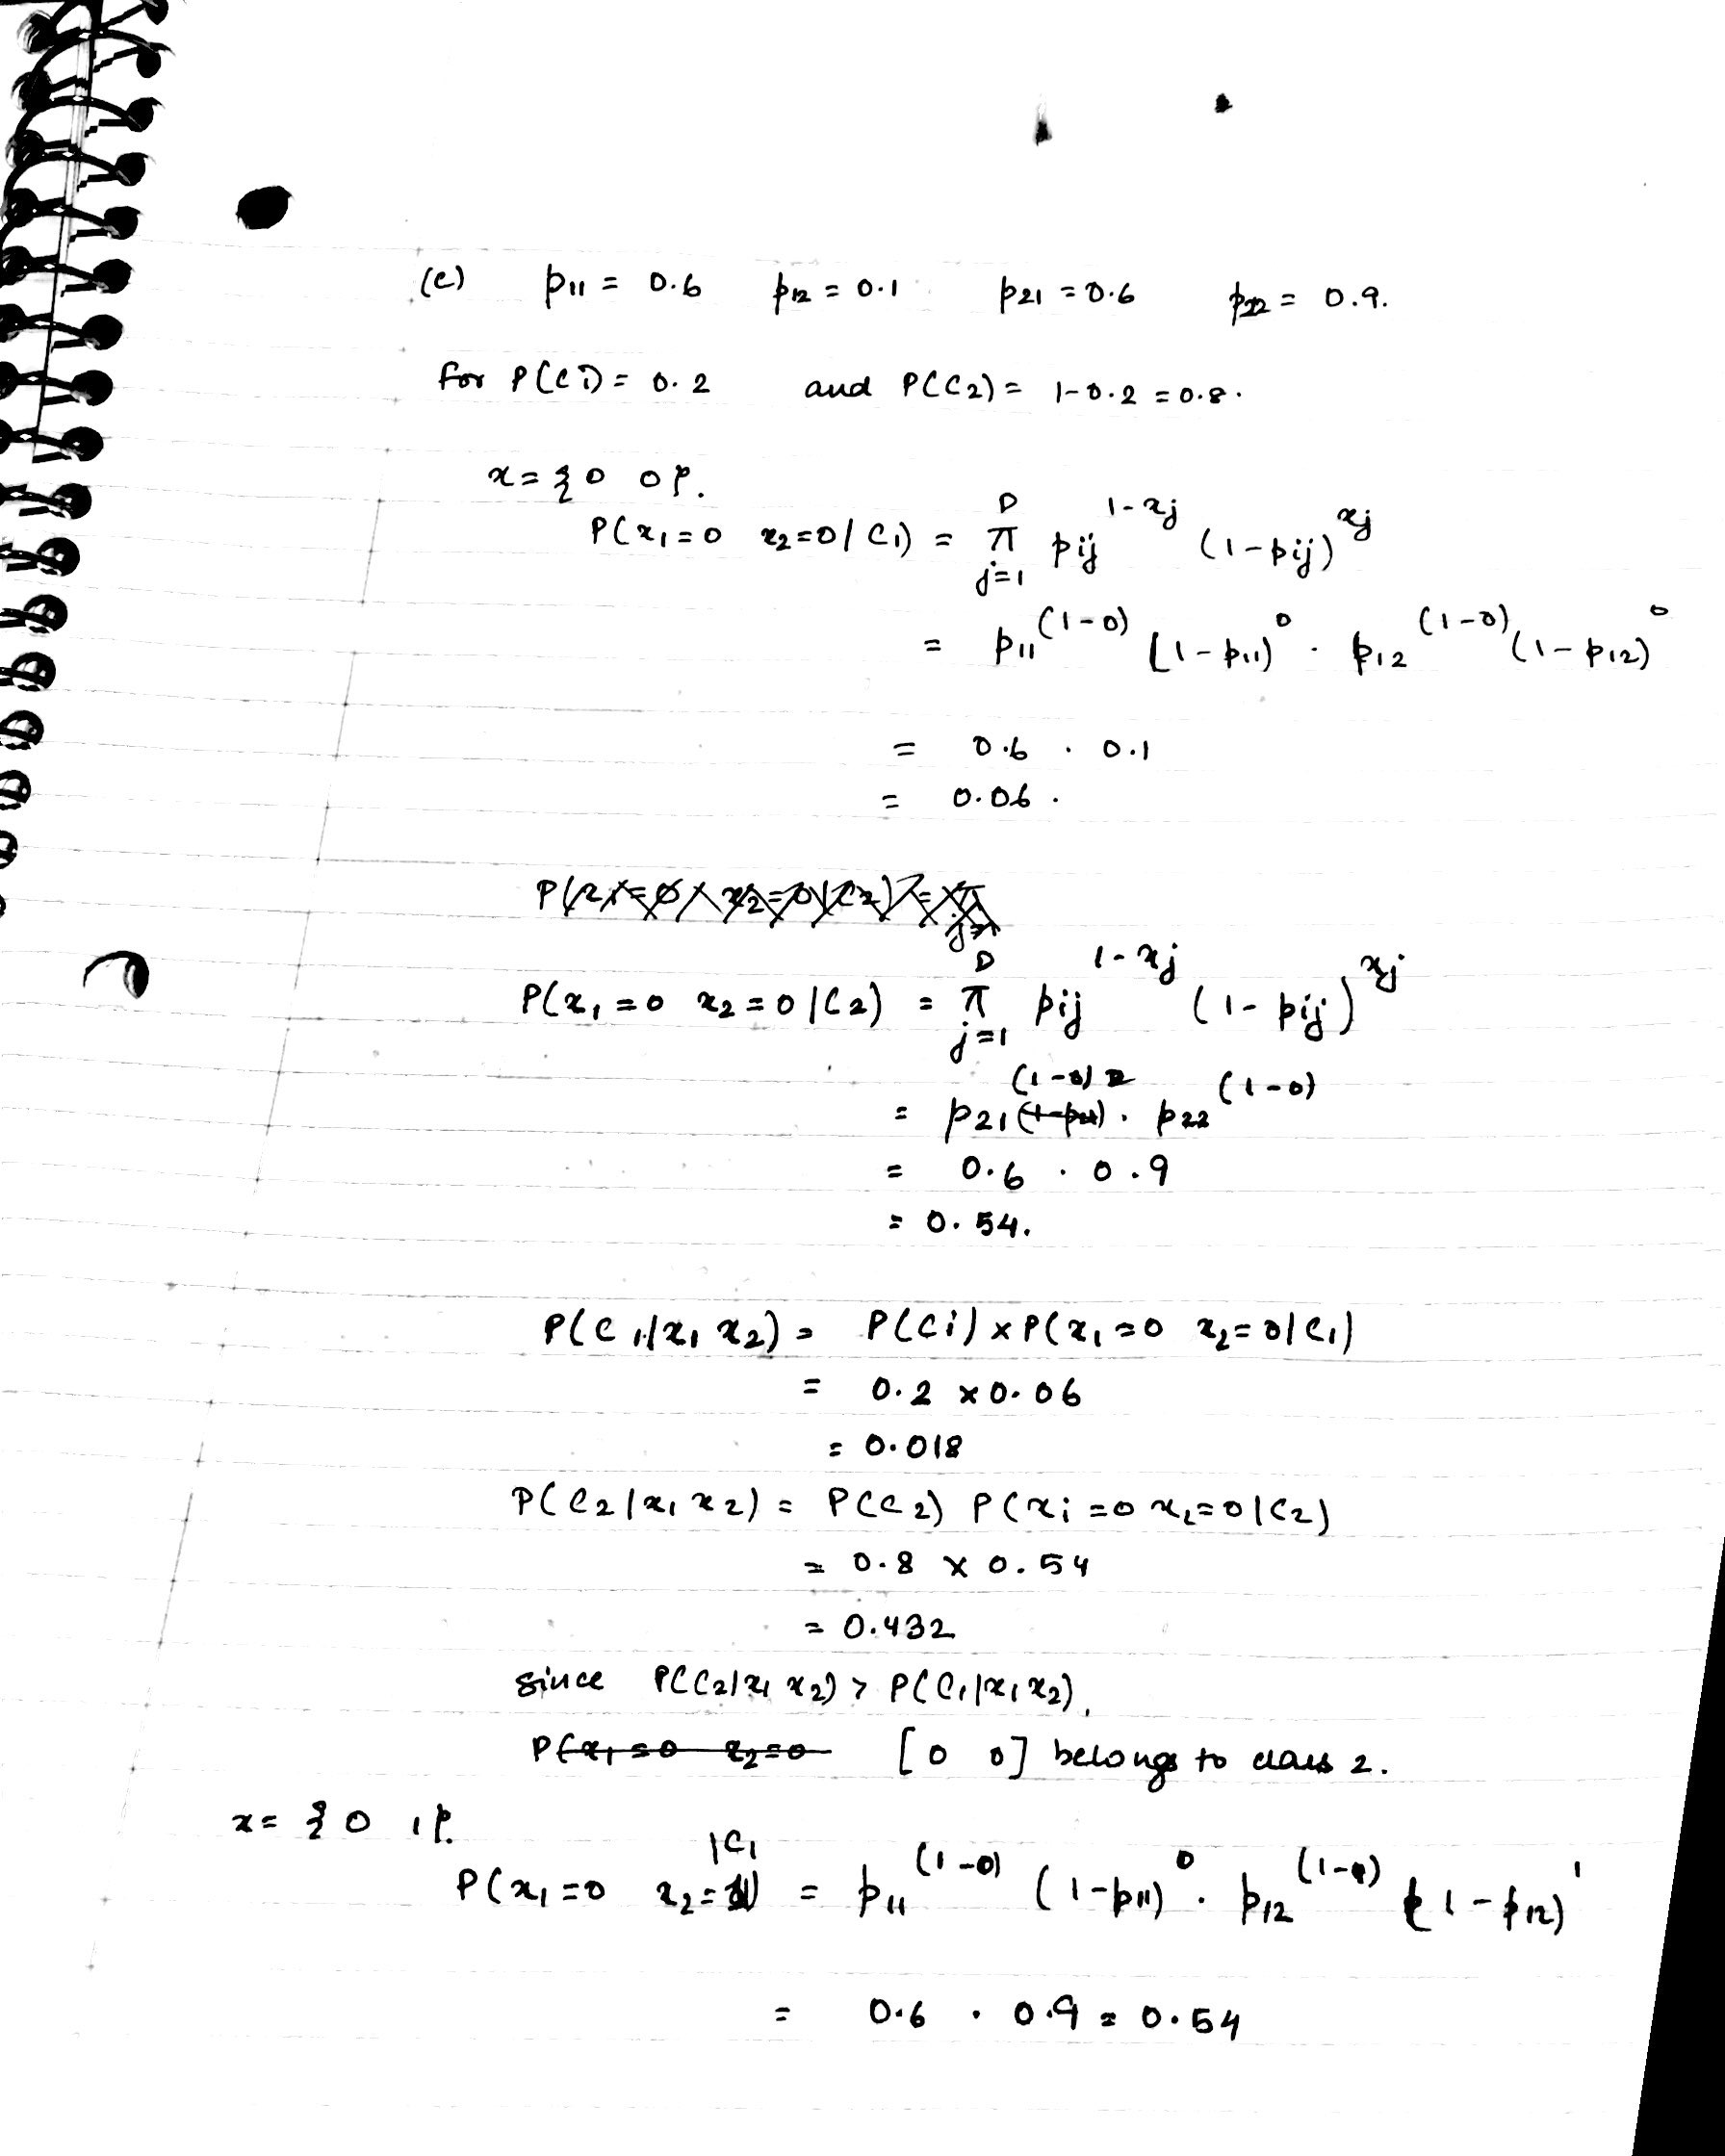 (c) p11 = 0.6 p12 = 0.1 p21 = 0.6 p22 = 0.9.
for P(C1) = 0.2 and P(C2) = 1-0.2 = 0.8.
x = {0 0}.
P(x1=0 x2=0/C1) = π_{j=1}^{D} pij^{1-xj} (1-pij)^{xj}
= p11^{(1-0)} (1-p11)^0 . p12^{(1-0)} (1-p12)^0
= 0.6 . 0.1
= 0.06.
P(x1=0 x2=0|C2) = π j=1
P(x1=0 x2=0|C2) = π_{j=1}^{D} pij^{1-xj} (1-pij)^{xj}
= p21^{(1-0)} (1-p21) . p22^{(1-0)}
= 0.6 . 0.9
= 0.54.
P(C1/x1 x2) = P(Ci) x P(x1=0 x2=0|C1)
= 0.2 x 0.06
= 0.018
P(C2|x1 x2) = P(C2) P(xi=0 x2=0|C2)
= 0.8 x 0.54
= 0.432
since P(C2|x1 x2) > P(C1|x1 x2),
P(x1=0 x2=0 [0 0] belongs to class 2.
x = {0 1}.
P(x1=0 x2=1|C1) = p11^{(1-0)} (1-p11)^0 . p12^{(1-1)} (1-p12)^1
= 0.6 . 0.9 = 0.54